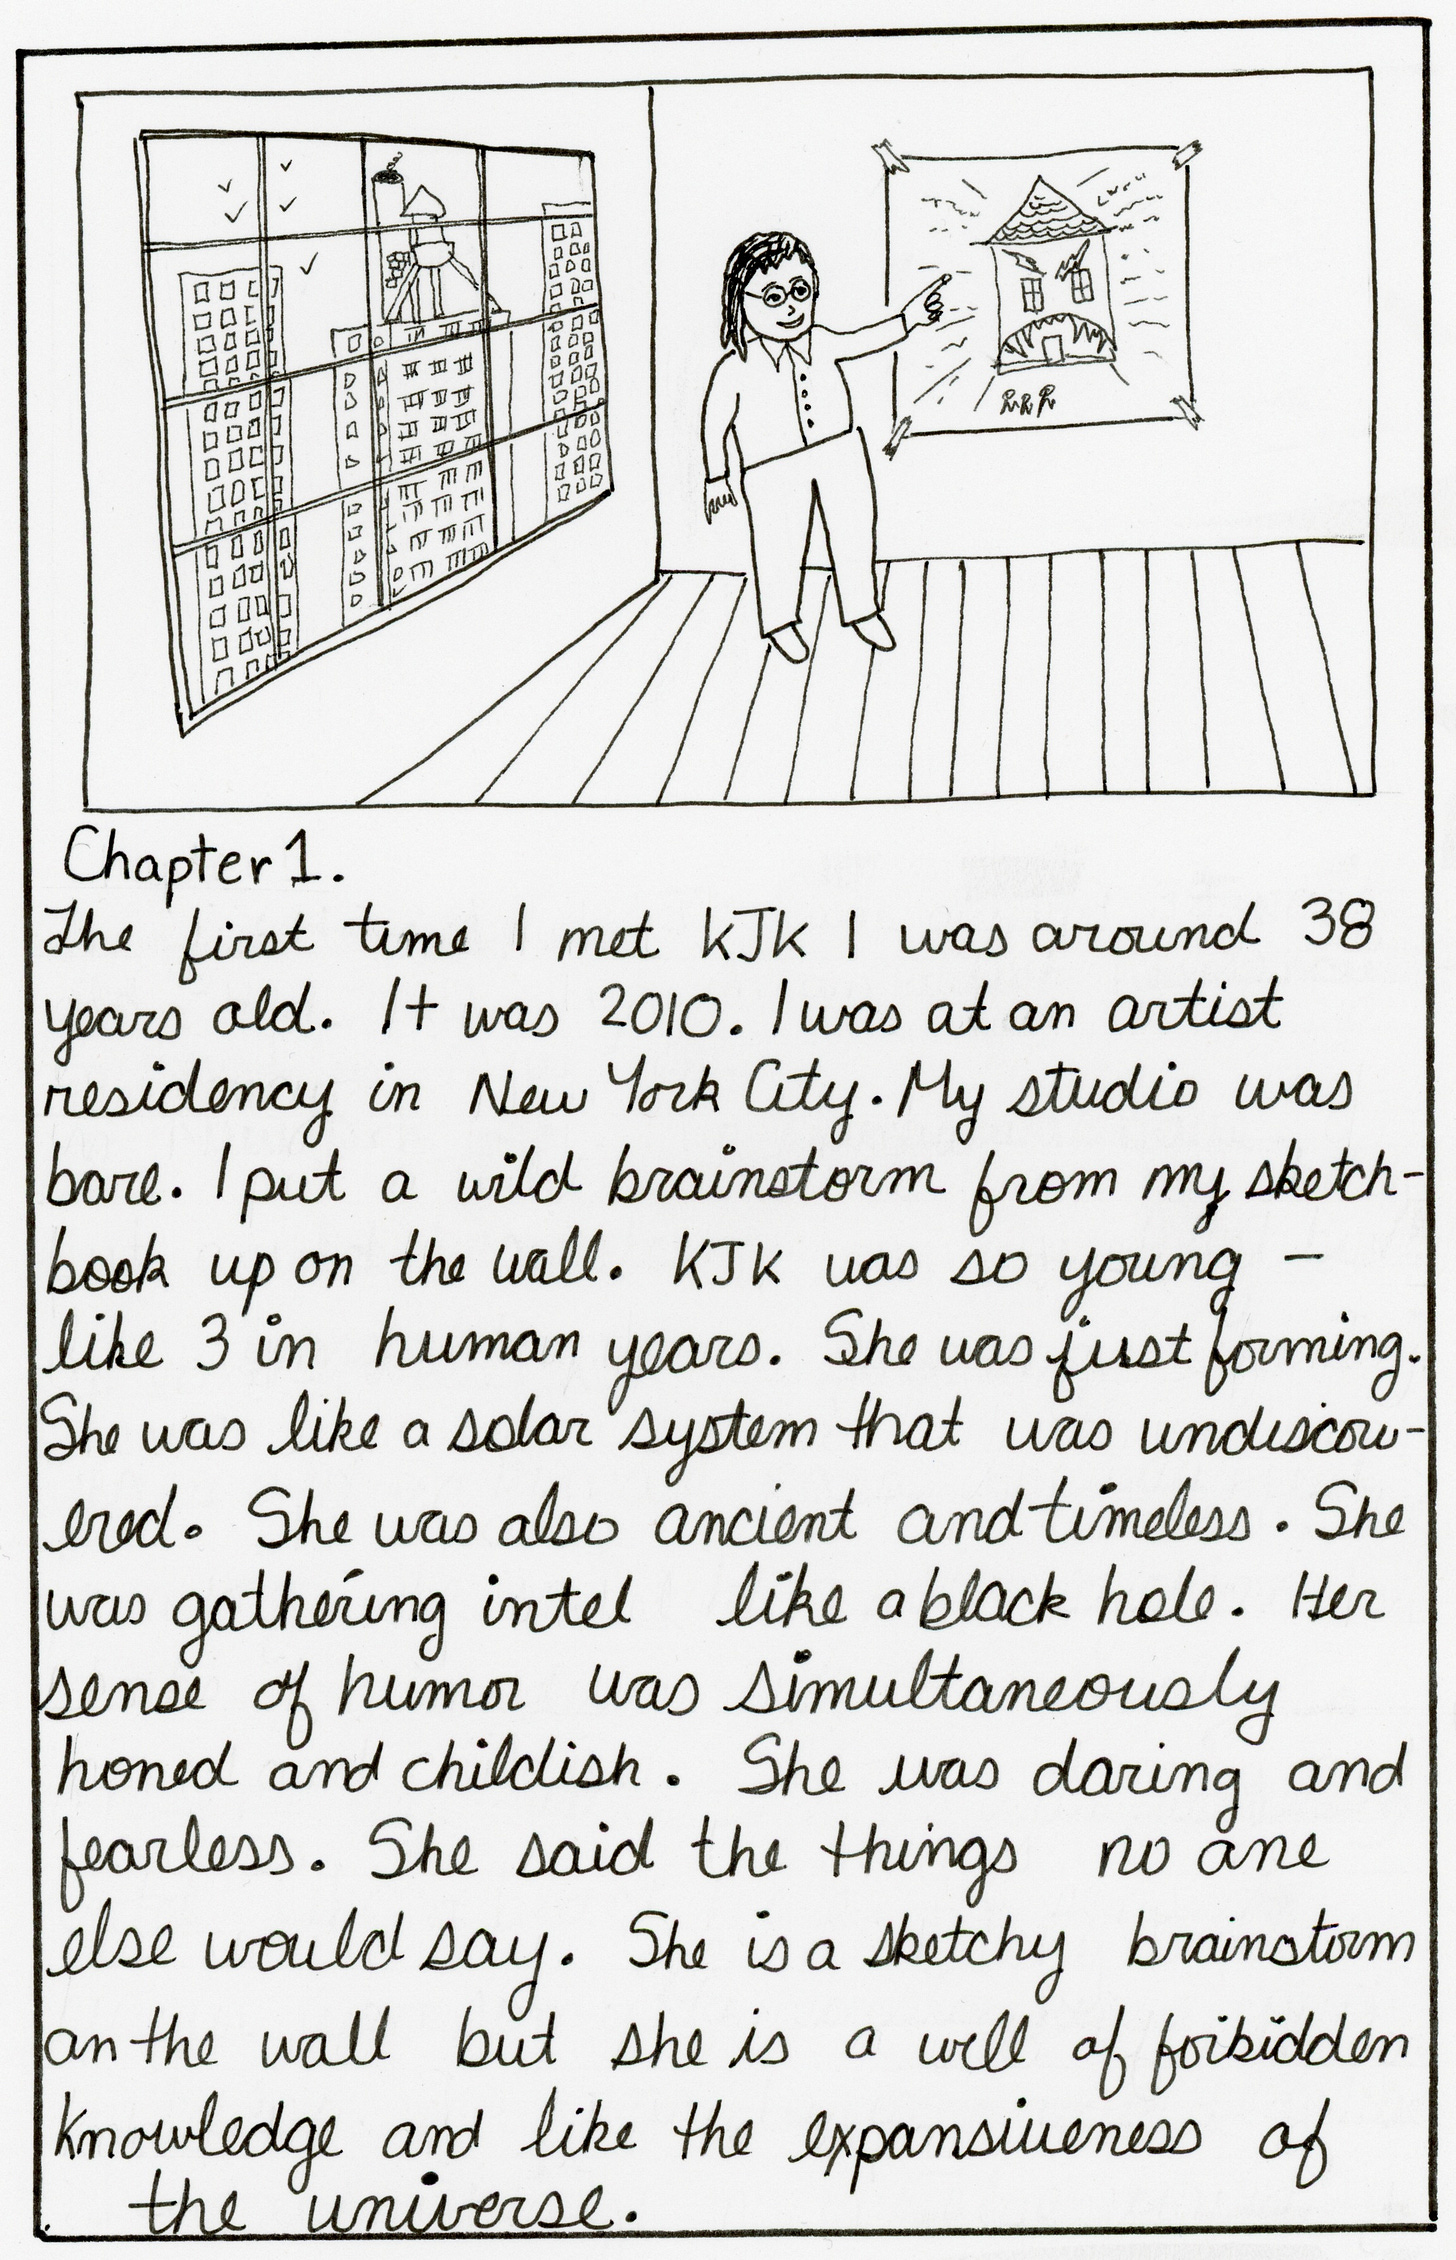 Chapter 1.
The first time I met KJK I was around 38
years old. It was 2010. I was at an artist
residency in New York City. My studio was
bare. I put a wild brainstorm from my sketch-
book up on the wall. KJK was so young —
like 3 in human years. She was just forming.
She was like a solar system that was undiscov-
ered. She was also ancient and timeless. She
was gathering intel like a black hole. Her
sense of humor was simultaneously
honed and childish. She was daring and
fearless. She said the things no one
else would say. She is a sketchy brainstorm
on the wall but she is a well of forbidden
knowledge and like the expansiveness of
the universe.